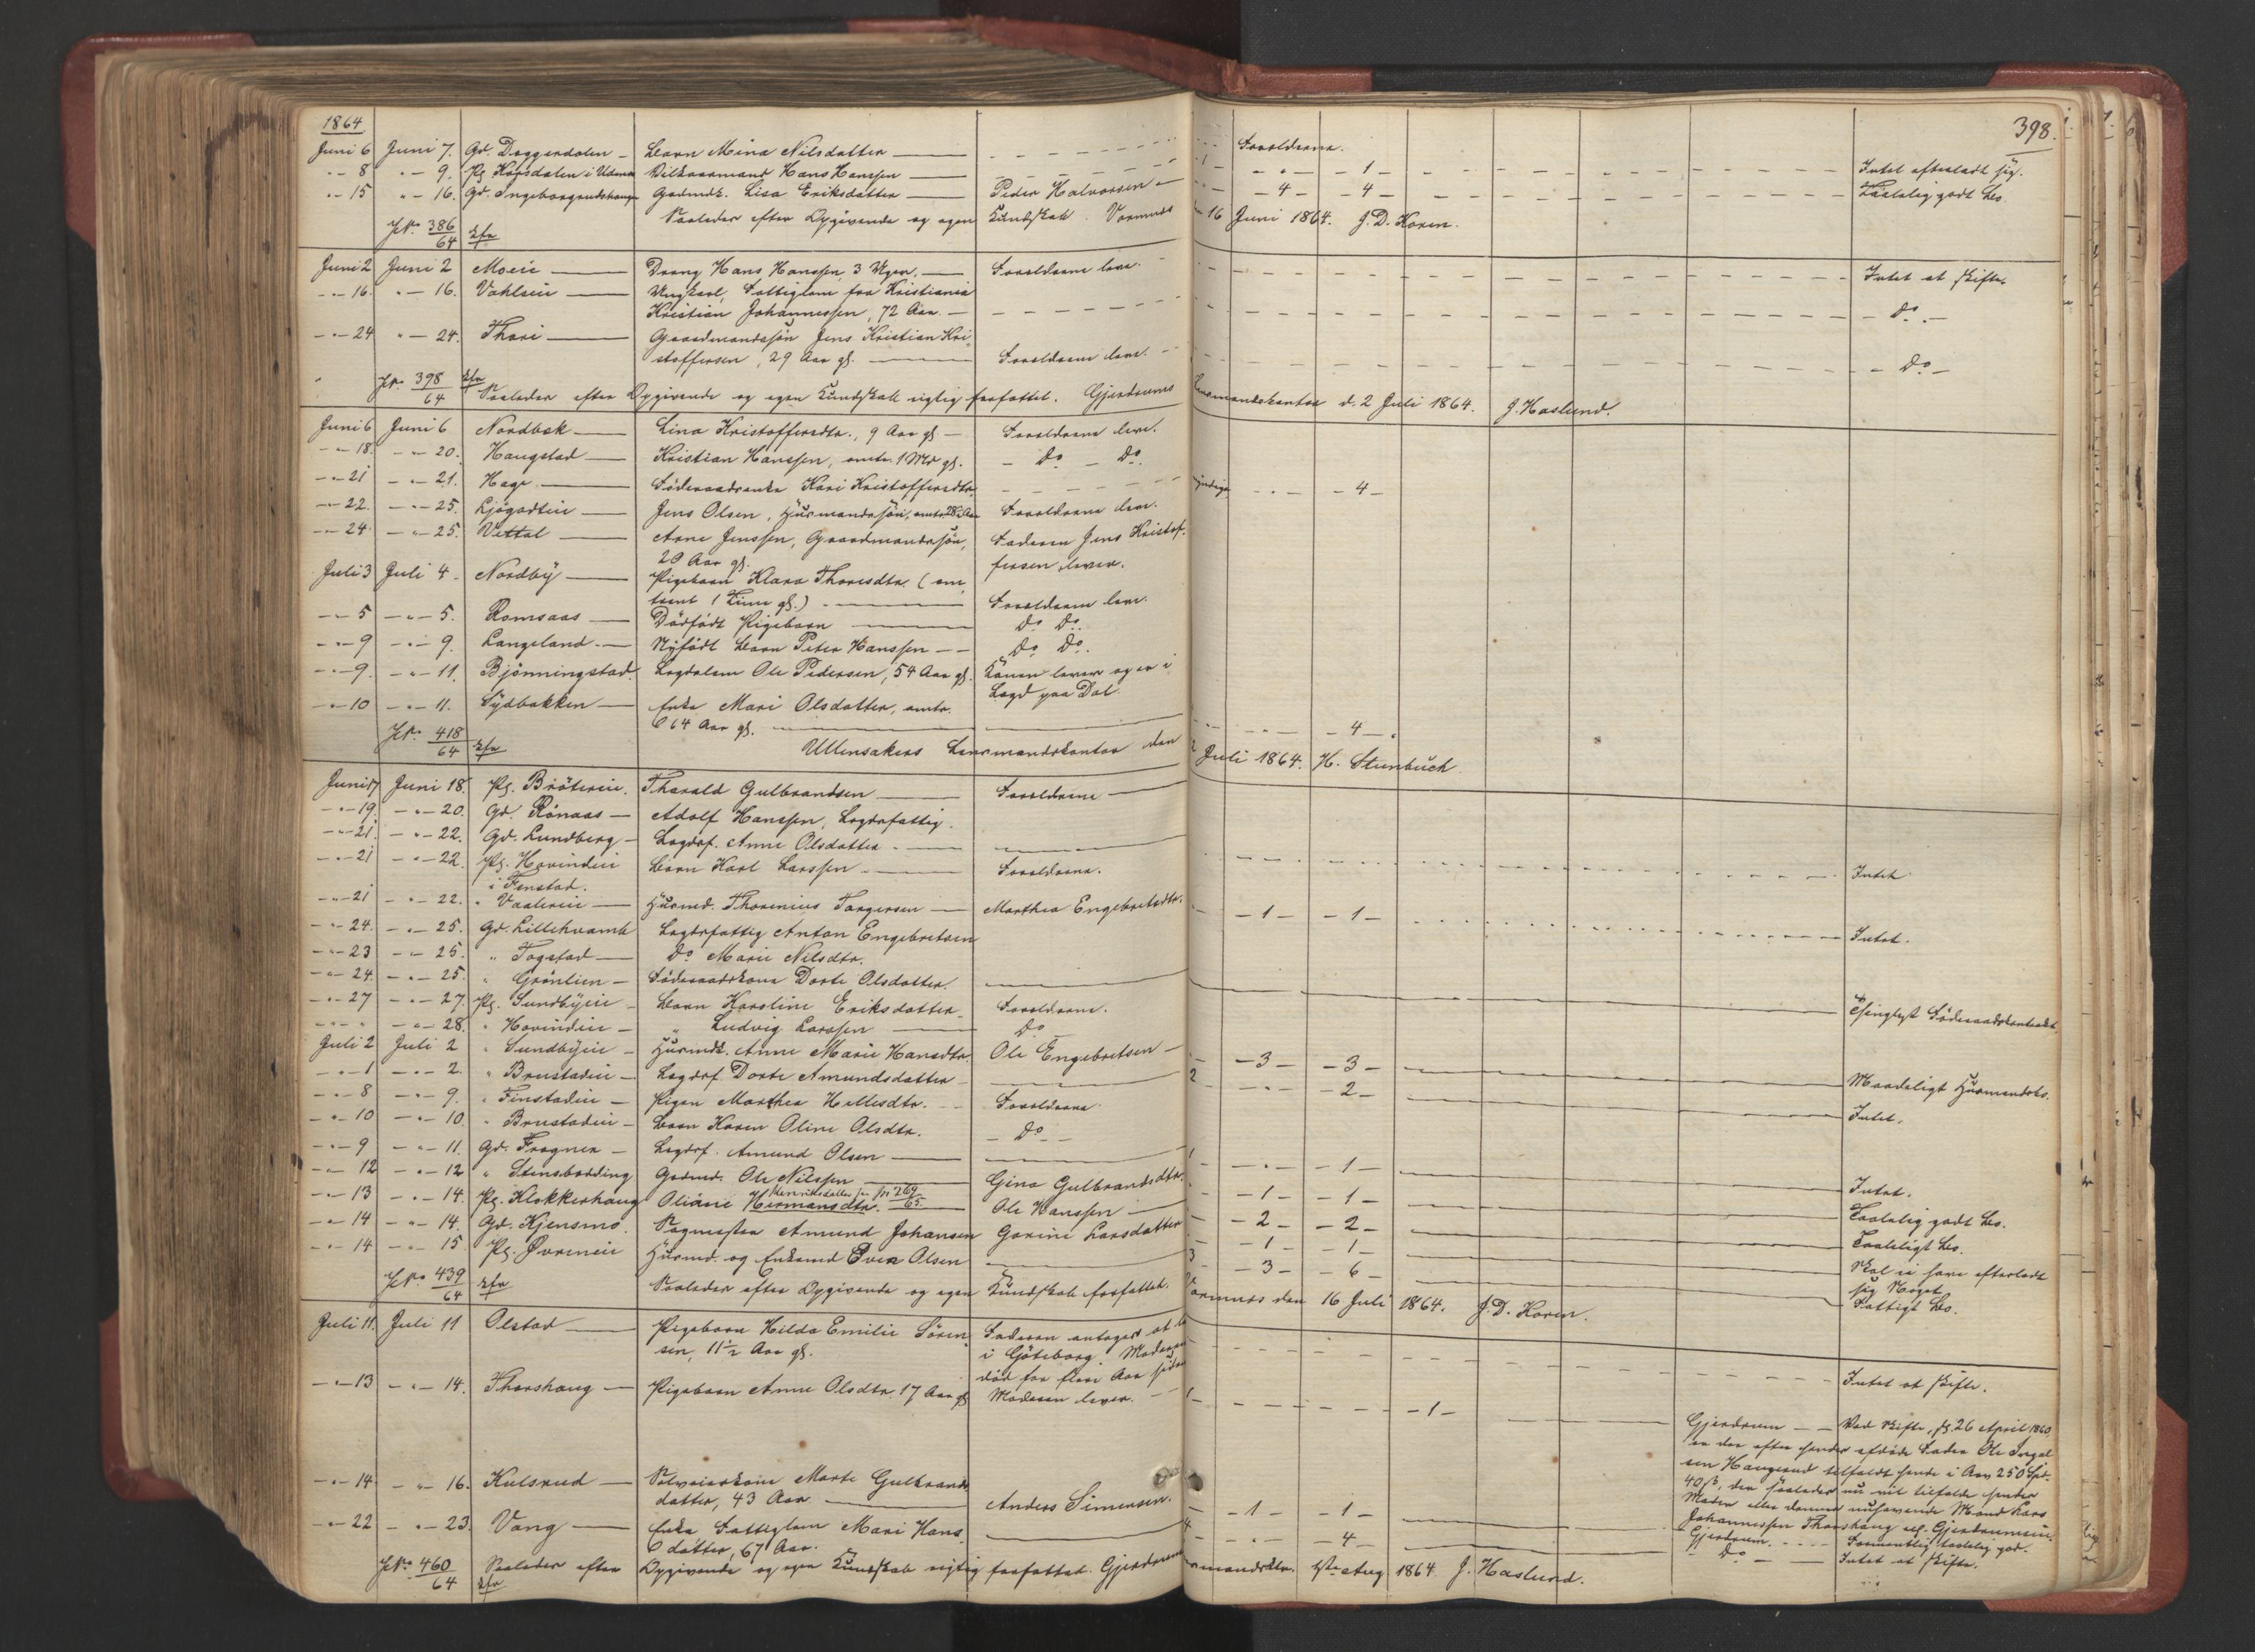 1864
398.
Juni 6 Juni 7. Gd. Doggerdalen - Barn Mina Nilsdatter Forældrene.
" - 8 " - 9. Pl. Korsdalen i Udmarken Vilkaarmand Hans Hanssen - 1 - Intet efterladt sig.
" - 15 " - 16. Gd. Ingeborgrudshaugen Gaardmdk. Lisa Eriksdatter Peder Halvorsen - 4 - - 4 - Taalelig godt Bo.
JNo. 386/64 Saaledes efter Opgivende og egen Kundskab. Vormnes 16 Juni 1864. J. D. Koren.
Juni 2 Juni 2 Moeie Dreng Hans Hanssen 3 Uger. Forældrene leve. Intet at skifte
" - 16. " - 16. Vahlseie Ungkarl, Fattiglem fra Kristiania
Kristian Johannessen, 72 Aar. - Do. -
" - 24 " - 24. Thori Gaardmandssøn Jens Kristian Kri-
stoffersen, 29 Aar gl. Forældrene leve. - Do -
JNo. 398/64 Saaledes efter Opgivende og egen Kundskab rigtig forfattet. Gjerdrums Lensmandskontor d. 2 Juli 1864. J. Haslund.
Juni 6 Juni 6 Nordbæk Lina Kristoffersdtr., 9 Aar gl - Forældrene leve.
" - 18. " - 20. Haugstad Kristian Hanssen, omtr. 1 Md gl. - Do - Do.
" - 21 " - 21. Haga Føderaadsenke Kari Kristoffersdtr - 4 -
" - 22. " - 25. Ljøgodteie Jens Olsen, Husmandssøn, omtr. 28 Aar Forældrene leve.
" - 24 " - 25. Vettal Arne Jenssen, Gaardmandssøn, Faderen Jens Kristof-
20 Aar gl. fersen lever.
Juli 3 Juli 4 - Nordby Pigebarn Klara Thoresdtr. (om-
trent 1 Time gl.) Forældrene leve.
" - 5 " - 5. Romsaas Dødfødt Pigebarn Do Do.
" - 9 " - 9. Langeland Nyfødt Barn Peter Hanssen - - Do Do.
" - 9. " - 11. Bjønningstad. Lægdslem Ole Pedersen, 54 Aar gl. Konen lever og er i
Lægd paa Dal
" - 10 " - 11. Sydbakken Enke Mari Olsdatter, omtr.
64 Aar gl. - 4 -
JNo. 418/64 Ullensakers Lensmandskontor den Juli 1864. H. Stenbuch
Juni 17 Juni 18. Pl. Brötereie. Tharald Gulbrandsen Forældrene
" - 19. " - 20. Gd. Rönaas - Adolf Hanssen, Lægdsfattig.
" - 21. " - 22. Gd. Lundberg - Lægdsf. Anne Olsdatter
" - 21 " - 22. Pl. Hovindeie Barn Karl Larssen Forældrene. Intet
i Fenstad.
" - 21 " - 22. " Vaalereie Husmd. Thorenius Torgersen Marthea Engebretsdtr. - 1 - - 1 -
" - 24. " - 25. Gd. Lillehvamb Lægdsfattig Anton Engebretsen Intet.
" - 23 " - 25. " Fogstad Do Marie Nilsdtr.
" - 24. " - 25. " Grönlien - Føderaadskone Dorte Olsdatter.
" - 27 " - 27. Pl. Sundbyeie - Barn Karoline Eriksdatter Forældrene. Thinglyst Føderaadskontrakt
" - " " - 28. " Hovindeie - " Ludvig Larssen Do
Juli 2 Juli 2 " Sundbyeie - Husmdk. Anne Marie Hansdtr. Ole Engebretsen - 3 - - 3 -
" - 1 " - 2. " Brustadeie - Lægdsf. Dorte Amundsdatter 2 - 2 - Maadeligt Husmandsbo.
" - 8 " - 9. " Finstadeie - Pigen Marthea Hellesdtr. Forældrene. Intet.
" - 10 " - 10. " Brustadeie - Barn Karen Oline Olsdtr. - Do -
" - 9 " - 11. Gd. Frogner - Lægdsf. Amund Olsen - 1 -
" - 12 " - 12 " Stensbodding Gaardmd. Ole Nilssen Gina Gulbrandsdtr. - 1 - - 1 - Intet.
" - 13 " - 14. Pl. Klokkerhaug Oliane Hermansdtr. Henriksdatter 269/65 Ole Hanssen - 2 - - 2 - Taalelig godt Bo.
" - 14 " - 14. Gd. Kjensmo. Vognmester Amund Johansen Gorine Larsdatter - 1 - - 1 - Taaleligt Bo.
" - 14 " - 15. Pl. Øvreneie Husmd. og Enkemd Even Olsen 3 - 3 - - 6 - Skal ei have efterladt
sig Noget.
Fattigt Bo.
JNo. 439/64 Saaledes efter Opgivende og egen Kundskab forfattet. Vormnes den 16 Juli 1864. J. D. Koren.
Juli 11. Juli 11 Olstad Pigebarn Hilda Emilie Sören- Faderen antages at
sen, 11½ Aar gl. i Göteborg. Moderen
død for flere Aar siden Intet at skifte.
" - 13 " - 14. Thorshaug Pigebarn Anne Olsdtr. 17 Aar gl Moderen lever. 1 - 1 -
Gjerdrum - - Ved Skifte, sl. 26 April 1860,
er der efter hendes afdøde Fader Ole Ingel-
sen Haugerud tilfaldt hende i Arv 250 Spd.
40 ß, der saaledes nu vil tilfalde hendes
Moder eller dennes nuhavende Mand Lars
Johannessen Thorshaug
" - 14 " - 16. Kulsrud Selveierkone Marte Gulbrands-
datter, 43 Aar Anders Simensen. - 1 - - 1 - Gjerdrum. - - - Formentlig taalelig god.
" - 22 " - 23. Vang Enke Fattiglem Mari Hans-
datter, 67 Aar. 4 - 4 - - Do - - Intet at skifte.
JNo. 460/64 Saaledes efter Opgivende og egen Kundskab rigtig forfattet. Gjerdrums 1ste Aug 1864 J. Haslund.